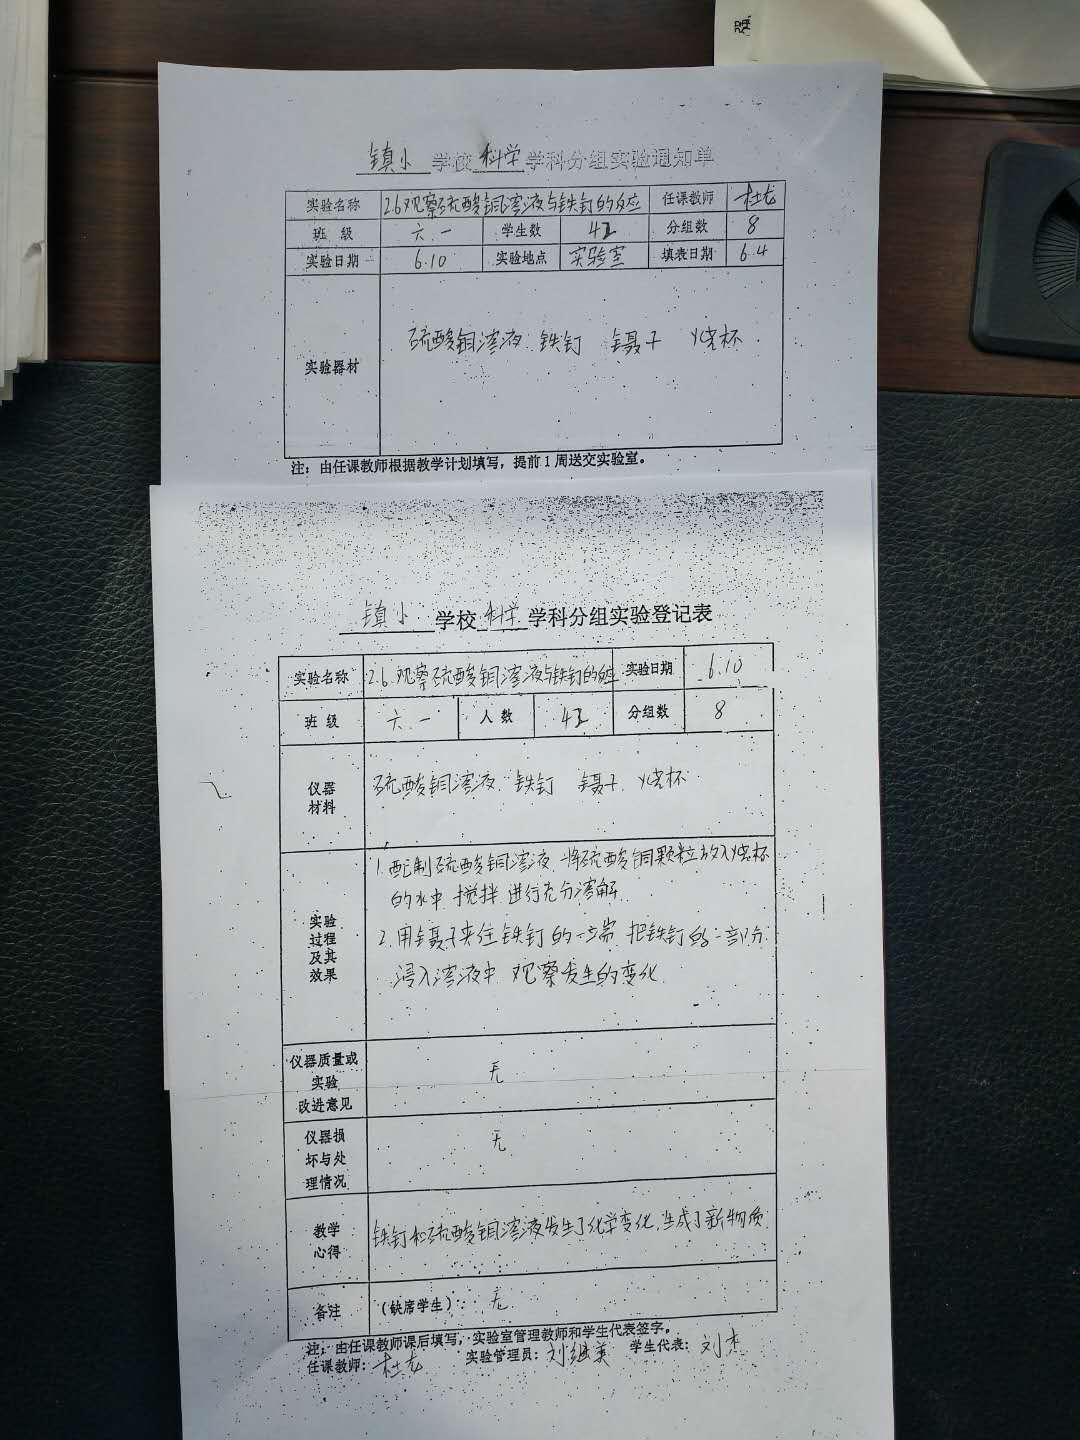 镇小学校科学学科分组实验通知单
实验名称 2.6观察硫酸铜溶液与铁钉的反应 任课教师 杜龙
班 级 六.一 学生数 42 分组数 8
实验日期 6.10 实验地点 实验室 填表日期 6.4
实验器材 硫酸铜溶液 铁钉 镊子 烧杯
注：由任课教师根据教学计划填写，提前1周送交实验室。
镇小学校科学学科分组实验登记表
实验名称 2.6.观察硫酸铜溶液与铁钉的反应 实验日期 6.10
班 级 六.一 人 数 42 分组数 8
仪器
材料
硫酸铜溶液 铁钉 镊子 烧杯
实验
过程
及其
效果
1.配制硫酸铜溶液.将硫酸铜颗粒放入烧杯
的水中 搅拌 进行充分溶解.
2.用镊子夹住铁钉的一端 把铁钉的一部分
浸入溶液中 观察发生的变化
仪器质量或
实验
改进意见
无
仪器损
坏与处
理情况
无
教学
心得
铁钉和硫酸铜溶液发生了化学变化.生成了新物质.
备注 （缺席学生）：无
注：由任课教师课后填写，实验室管理教师和学生代表签字。
任课教师：杜龙 实验管理员：刘继英 学生代表：刘杰